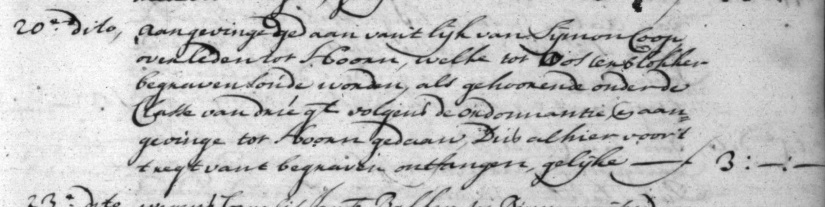 20.en dito, aangevinge gedaan van't lijk van Sijmon Coop
overleden tot Hoorn, welke tot Oosterblokker
begraven soude worden, als gehoorende onder de
Classe van drie gl. volgens de ordonnantie, en aan=
gevinge tot Hoorn gedaan, Dus alhier voor't
't regt van't begraven ontfangen, gelijke — 3:—:—
23.en dito